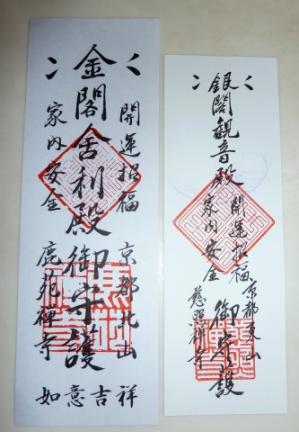 開運招福 京都北山
金閣舎利殿御守護
家内安全 鹿苑禅寺
如意吉祥
開運招福 京都東山
銀閣観音殿 御守護
家内安全 慈照禅寺